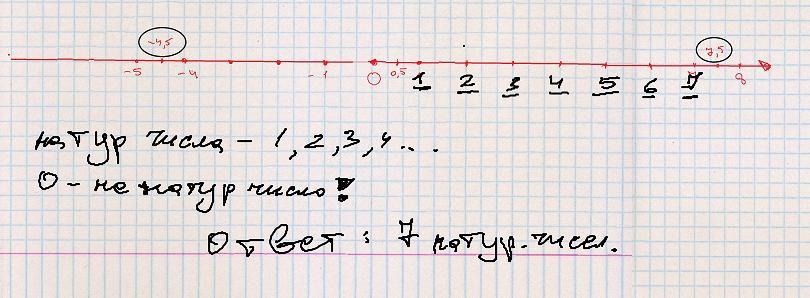 -4,5 7,5
-5 -4 -1 0 0,5 1 2 3 4 5 6 7 8
натур числа - 1, 2, 3, 4...
0 - не натур число!
Ответ: 7 натур. чисел.